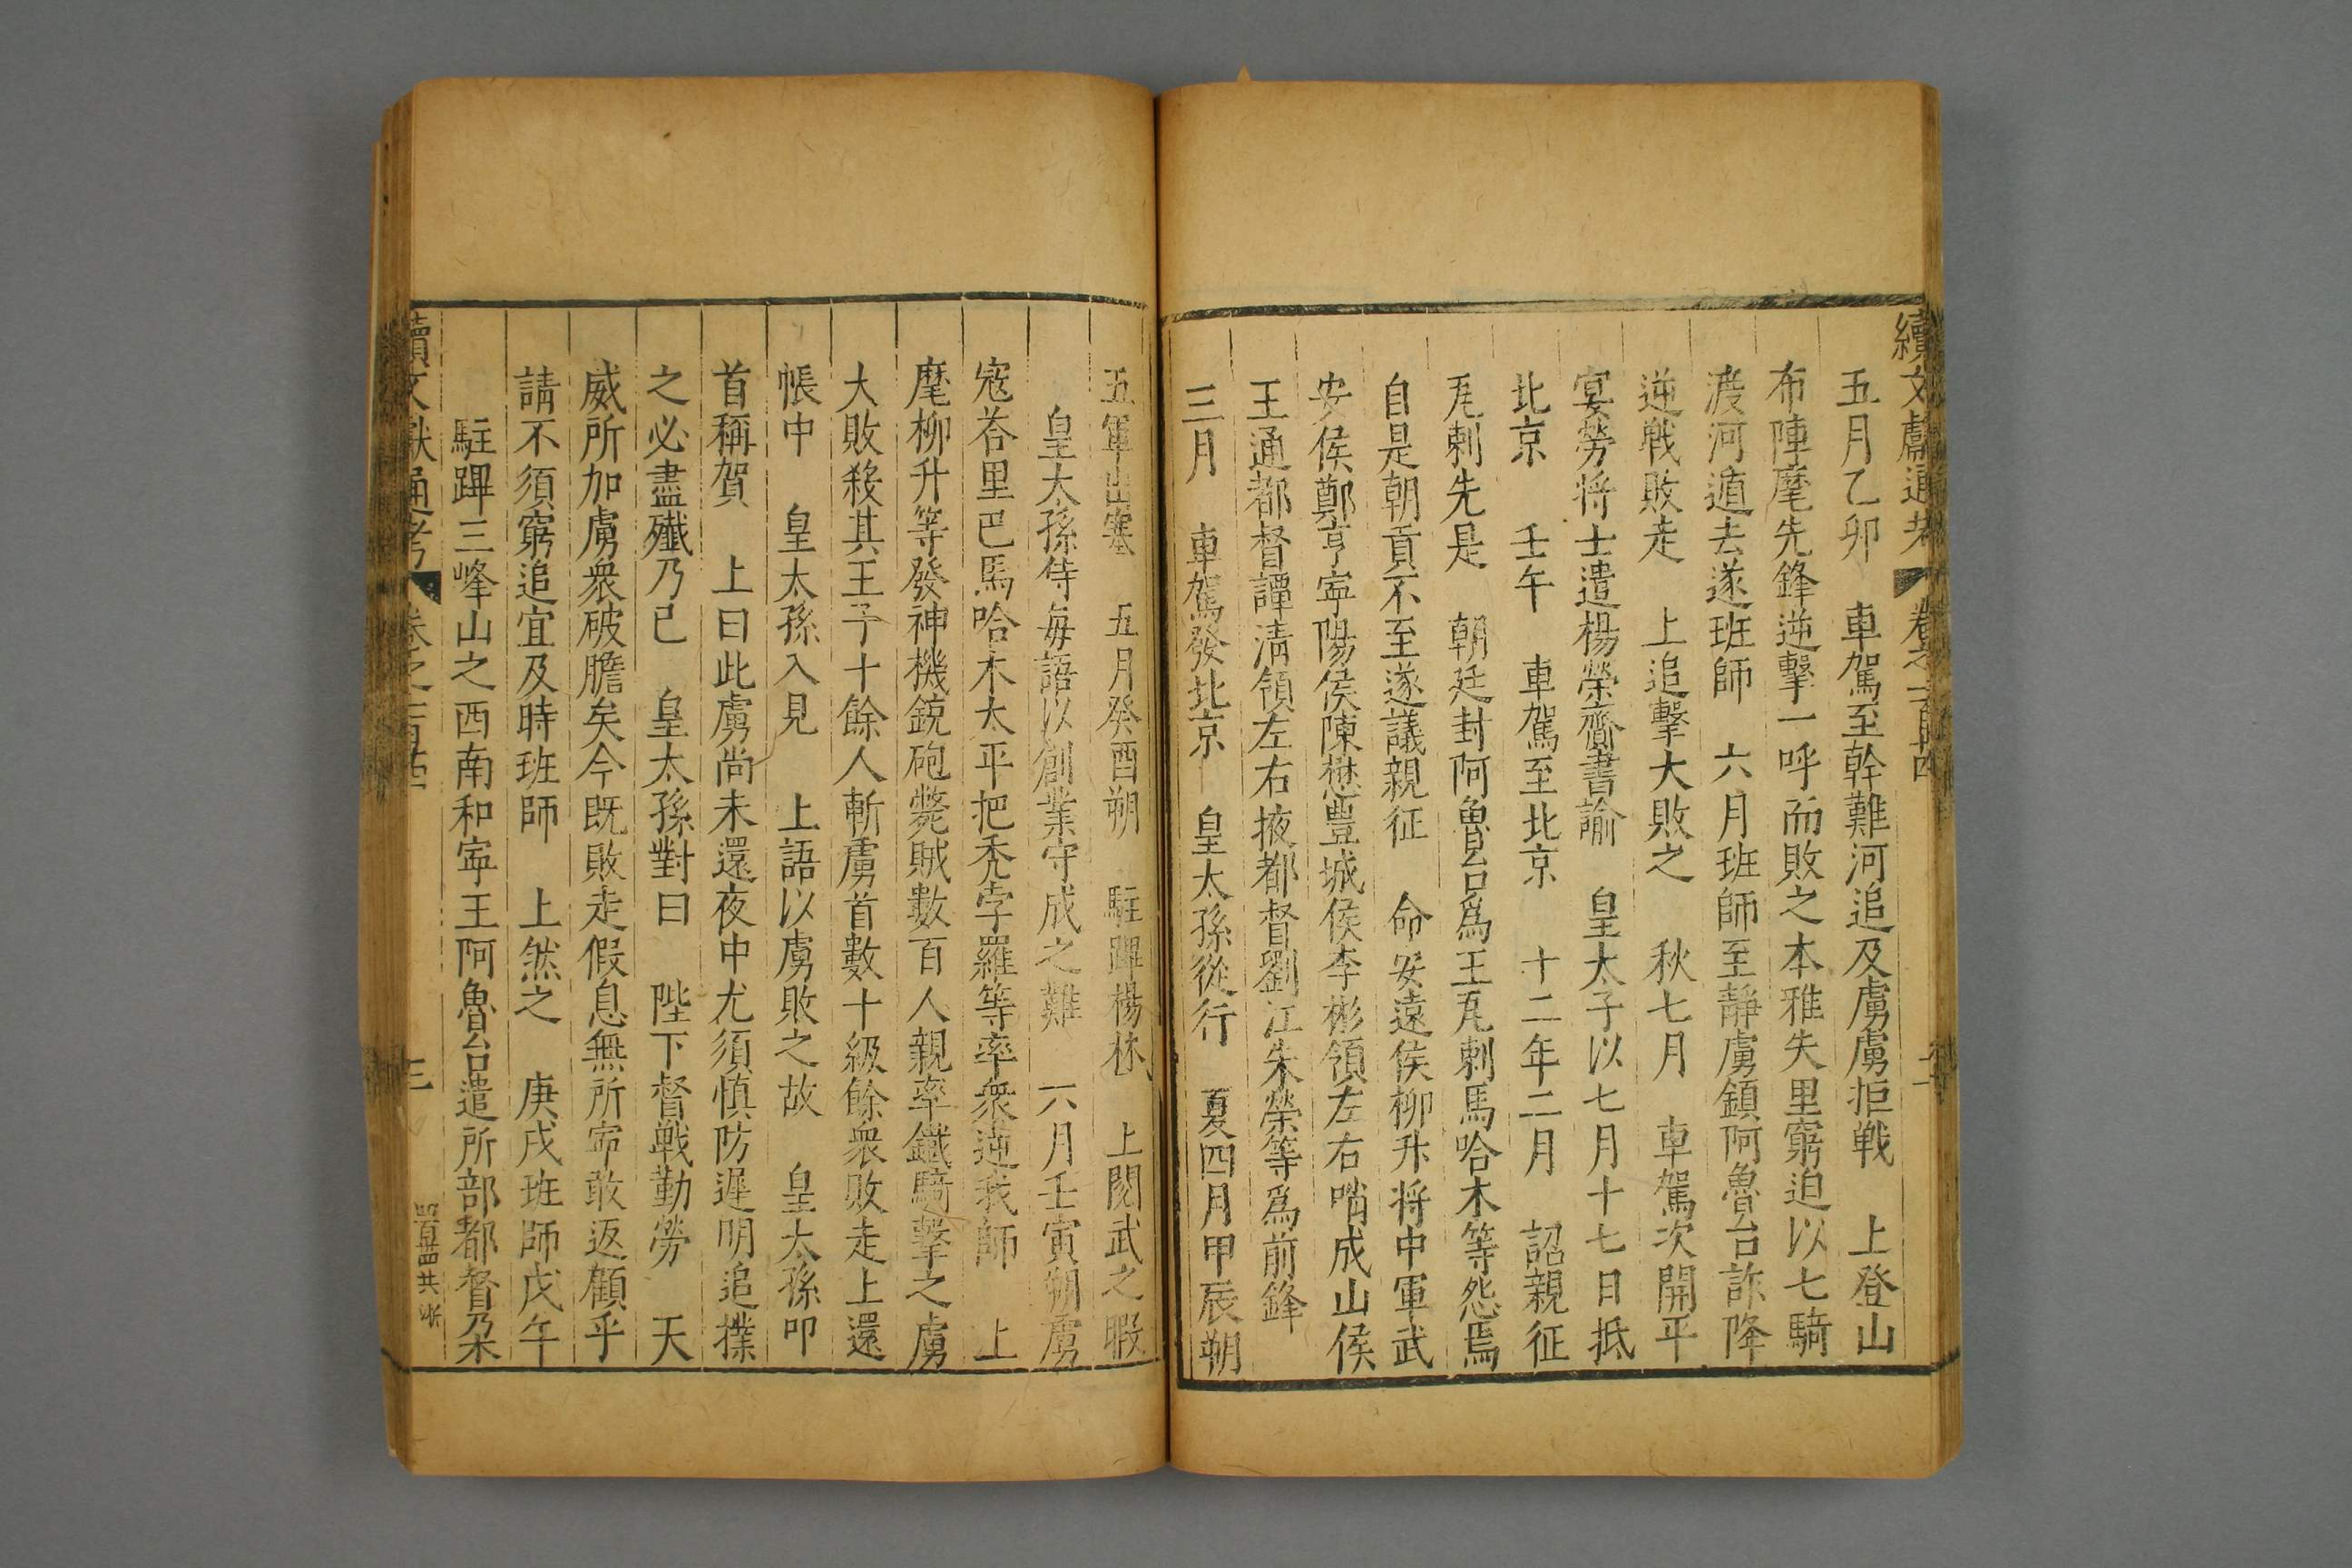 續文獻通考 卷之一百四
五月乙卯 車駕至斡難河追及虜虜拒戰 上登山
布陣麾先鋒逆擊一呼而敗之本雅失里窮迫以七騎
渡河遁去遂班師 六月班師至靜虜鎮阿魯台詐降
逆戰敗走 上追擊大敗之 秋七月 車駕次開平
宴勞將士遣楊榮齎書諭 皇太子以七月十七日抵
北京 壬午 車駕至北京 十二年二月 詔親征
瓦剌先是 朝廷封阿魯台爲王瓦剌馬哈木等怨焉
自是朝貢不至遂議親征 命安遠侯柳升將中軍武
安侯鄭亨寧陽侯陳懋豐城侯李彬領左右哨成山侯
王通都督譚淸領左右掖都督劉江朱榮等爲前鋒
三月 車駕發北京 皇太孫從行 夏四月甲辰朔
五軍出塞 五月癸酉朔 駐蹕楊林 上閱武之暇
皇太孫侍每語以創業守成之難 六月壬寅朔虜
寇荅里巴馬哈木太平把禿孛羅等率衆逆我師 上
麾柳升等發神機銃砲斃賊數百人親率鐵騎擊之虜
大敗殺其王子十餘人斬虜首數十級餘衆敗走上還
帳中 皇太孫入見 上語以虜敗之故 皇太孫叩
首稱賀 上曰此虜尚未還夜中尤須慎防遲明追撲
之必盡殲乃已 皇太孫對曰 陛下督戰勤勞 天
威所加虜衆破膽矣今既敗走假息無所寧敢返顧乎
請不須窮追宜及時班師 上然之 庚戌班師戊午
駐蹕三峰山之西南和寧王阿魯台遣所部都督朶
續文獻通考 卷之一百四 三